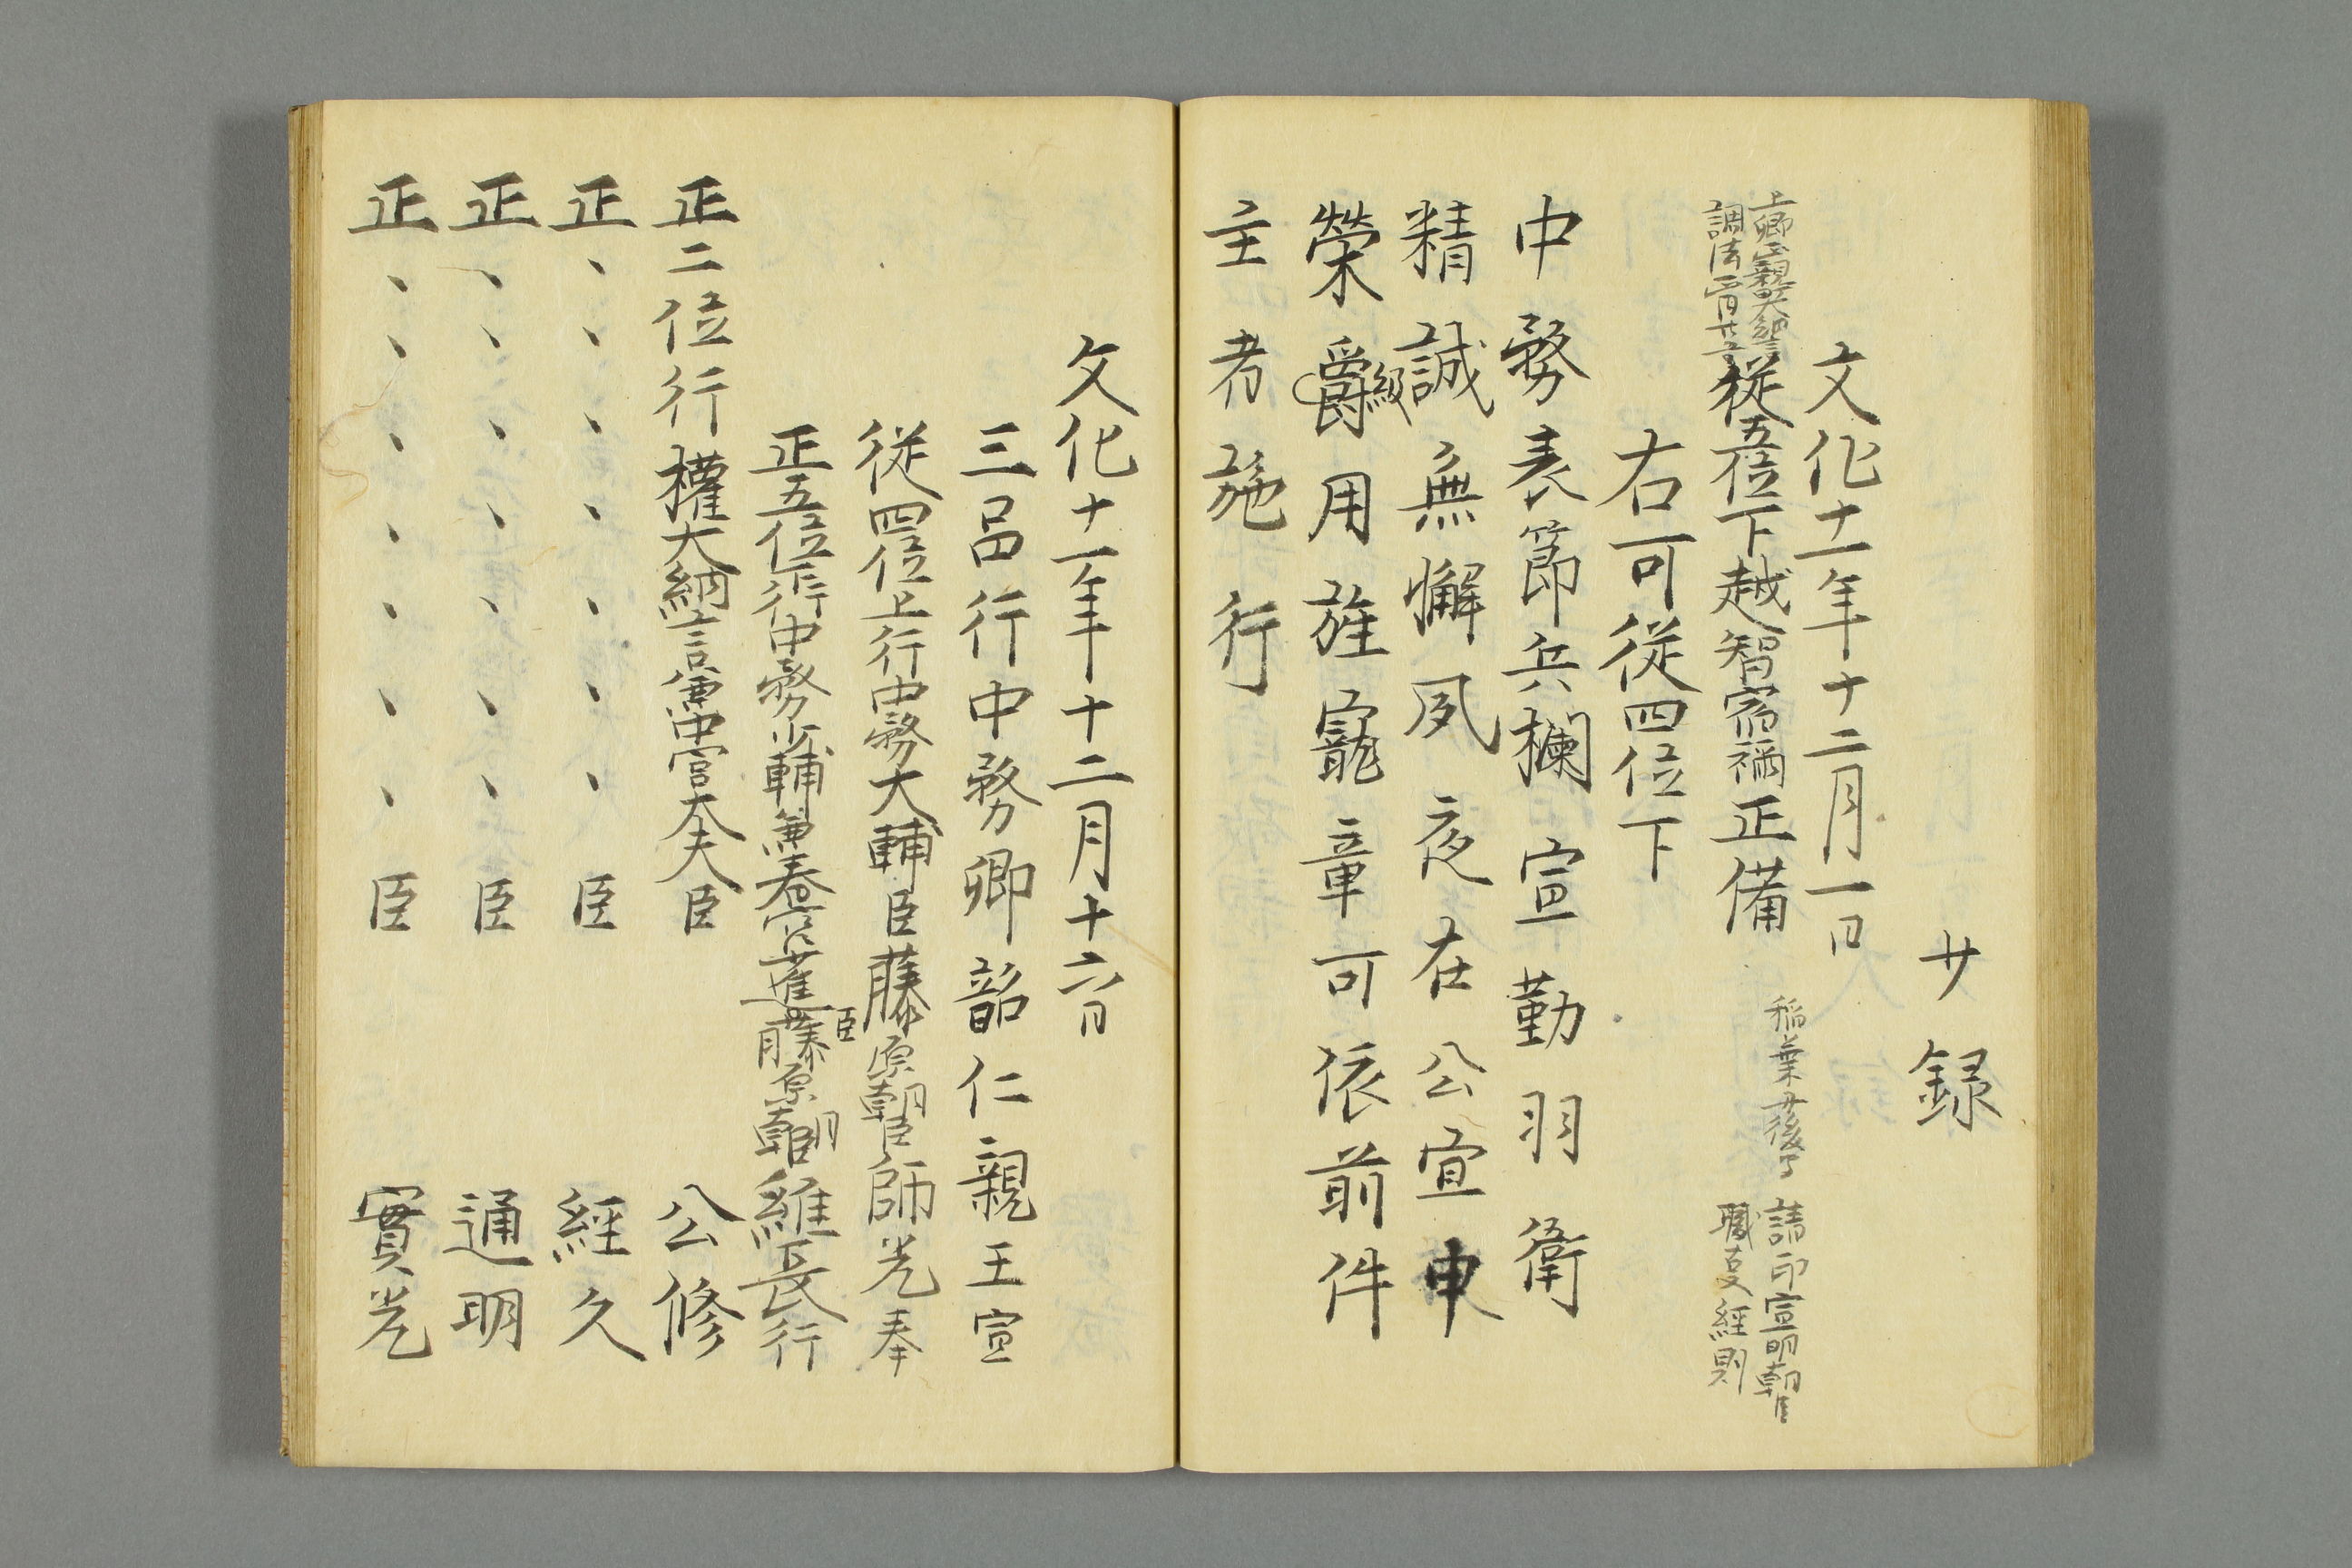 少録
文化十一年十二月一日
従五位下越智宿祢正備
稲葉丹後守
請印宣明朝臣
職事経則
右可従四位下
中務表節兵欄宣勤羽衛
精誠無懈夙夜在公宜申
榮爵級用旌寵章可依前件
主者施行
文化十一年十二月十六日
三品行中務卿韶仁親王宣
従四位上行中務大輔臣藤原朝臣師光奉
正五位下行中務少輔兼春宮大進臣藤原朝臣維長行
正二位行權大納言兼中宮大夫臣 公修
正、、、、、、臣 經久
正、、、、、、臣 通明
正、、、、、、臣 實光